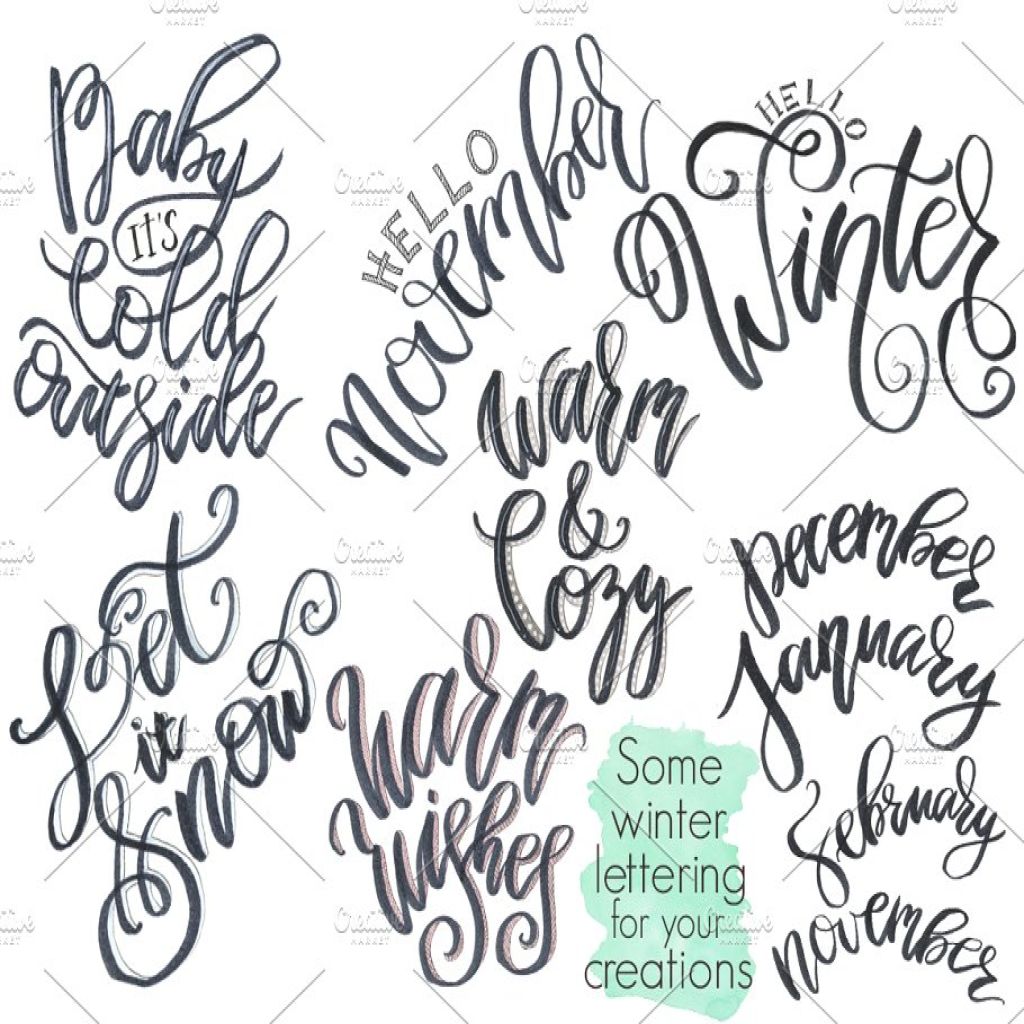 Baby
IT'S
Cold
Outside
HELLO
November
HELLO
Winter
Warm
&
Cozy
Let
it
Snow
Warm
Wishes
December
January
February
november
Some
winter
lettering
for your
creations
Creative
MARKET